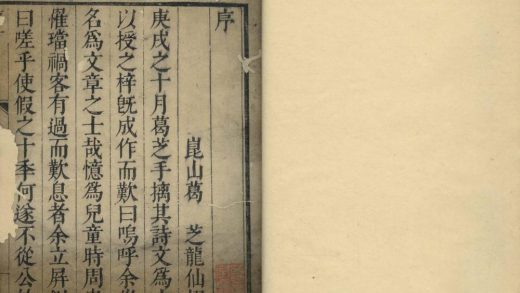 序
崑山葛 芝龍仙
庚戌之十月葛芝手摛其詩文爲
以授之梓旣成作而歎曰嗚呼余
名爲文章之士哉憶爲兒童時周
罹璫禍客有過而歎息者余立屏
曰嗟乎使假之十季何遂不從公